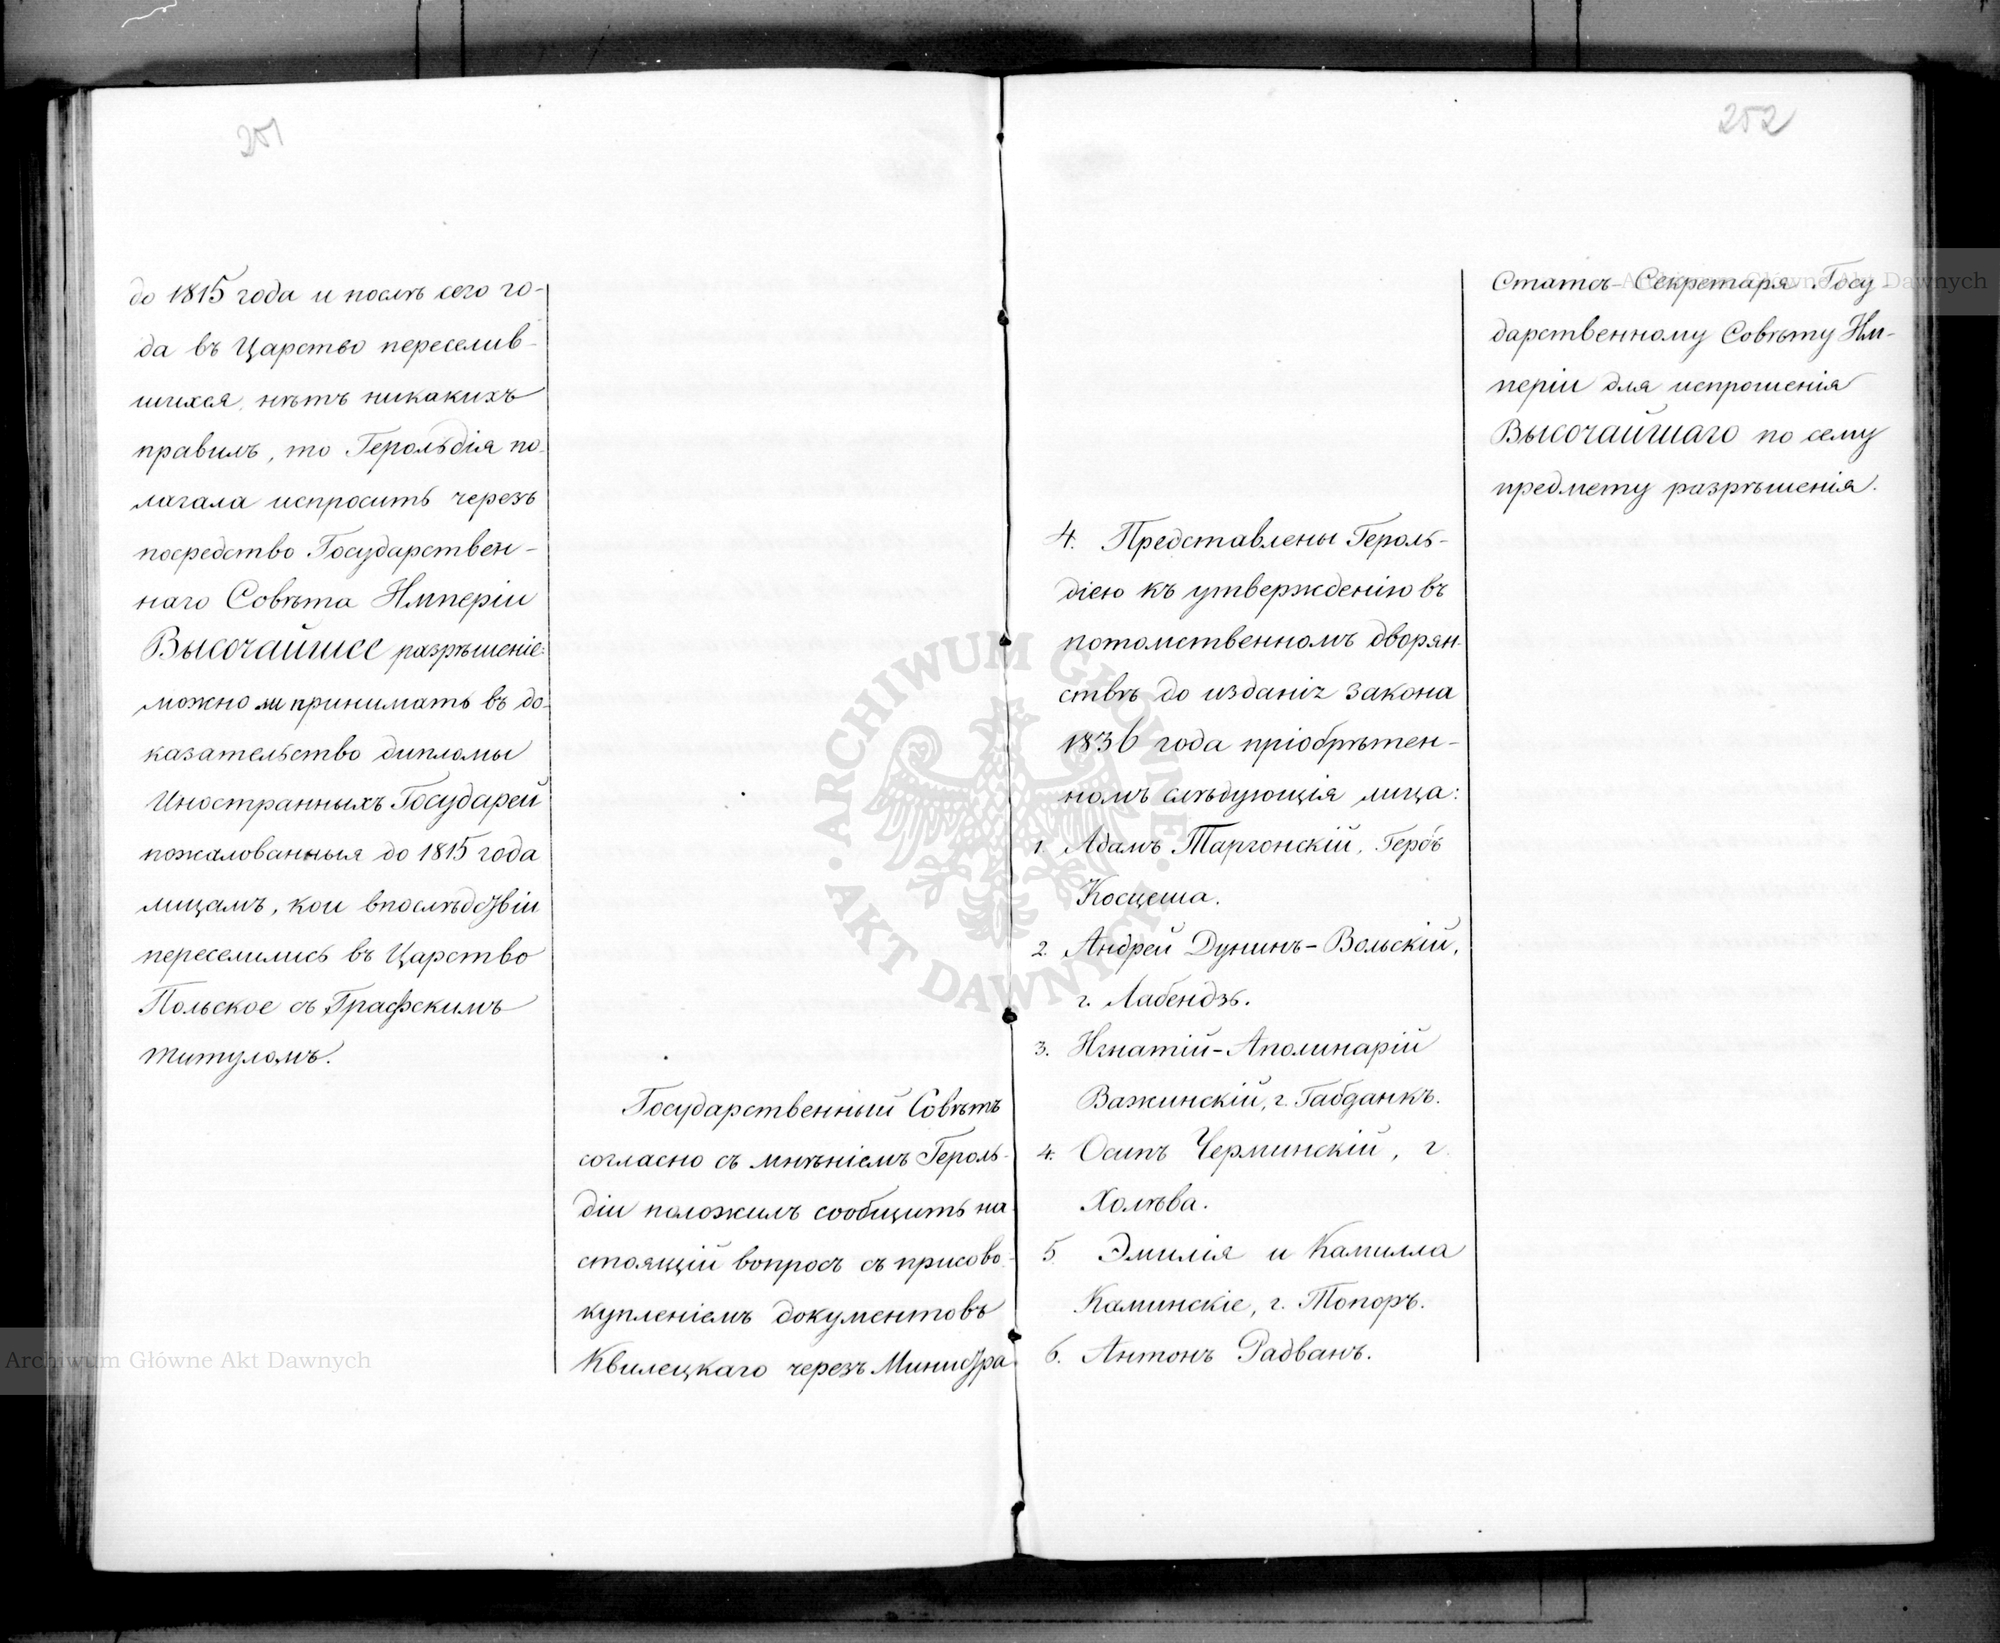 251
до 1815 года и послѣ сего го-
да въ Царство переселив-
шихся, нѣтъ никакихъ
правилъ, то Герольдія по-
лагала испросить черезъ
посредство Государствен-
наго Совѣта Имперіи
Высочайшее разрѣшеніе:
можно ли принимать въ до-
казательство дипломы
Иностранныхъ Государей
пожалованныя до 1815 года
лицамъ, кои впослѣдствіи
переселились въ Царство
Польское съ Графскимъ
титуломъ.
Государственный Совѣтъ
согласно съ мнѣніемъ Героль-
діи положилъ сообщить на
стоящій вопросъ съ присово-
купленіемъ документовъ
Квилецкаго черезъ Министра
252
4. Представлены Героль-
діею къ утвержденію въ
потомственномъ дворян-
ствѣ до изданія закона
1836 года пріобрѣтен-
номъ слѣдующія лица:
1. Адамъ Таргонскій, Герба
Косцеша.
2. Андрей Дунинъ-Вольскій,
г. Лабендзь.
3. Игнатій-Аполинарій
Важинскій, г. Габданкъ.
4. Осипъ Черминскій, г.
Холѣва.
5. Эмилія и Камилла
Каминскіе, г. Топоръ.
6. Антонъ Радванъ.
Статсъ-Секретаря Госу-
дарственному Совѣту Им-
періи для испрошенія
Высочайшаго по сему
предмету разрѣшенія.
ARCHIWUM GŁÓWNE AKT DAWNYCH
Archiwum Główne Akt Dawnych
Archiwum Główne Akt Dawnych